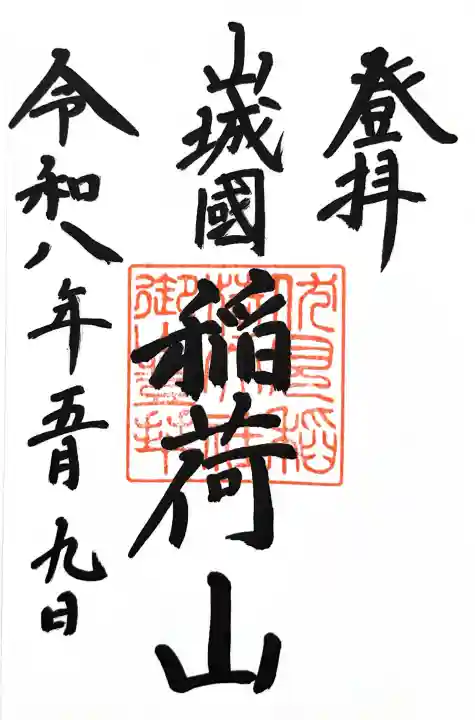 登拝
山城國
稲荷山
令和八年五月九日